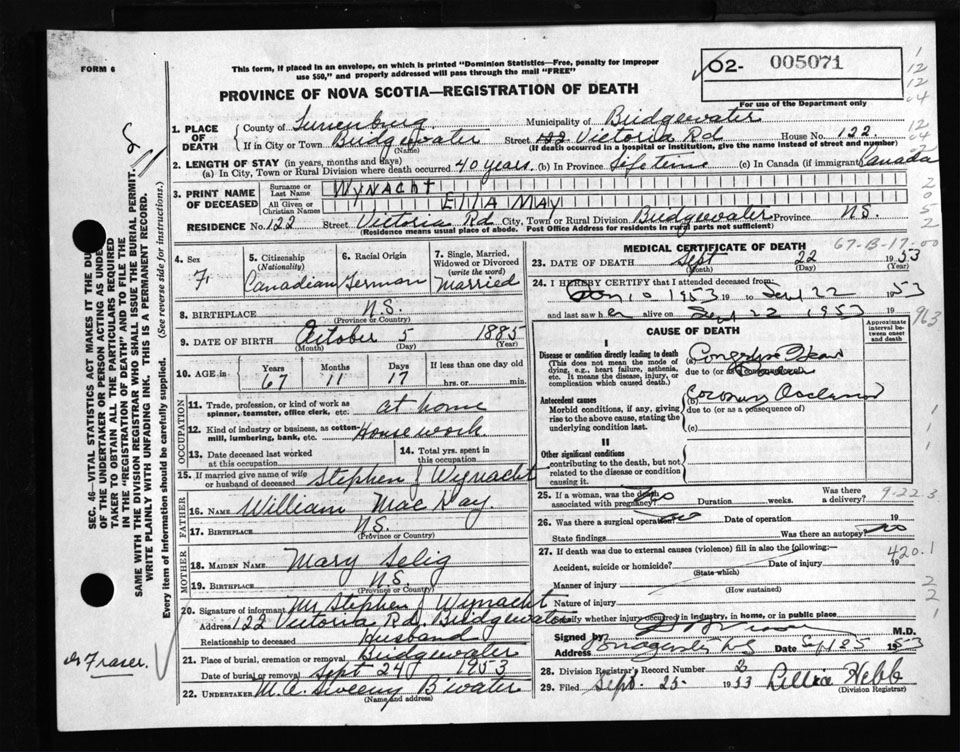 FORM 6
This form, if placed in an envelope, on which is printed "Dominion Statistics—Free, penalty for improper
use $50," and properly addressed will pass through the mail "FREE"
02- 005071
For use of the Department only
PROVINCE OF NOVA SCOTIA—REGISTRATION OF DEATH
1. PLACE OF DEATH
County of Lunenburg Municipality of Bridgewater
If in City or Town Bridgewater Street 122 Victoria Rd House No. 122.
(Name) (If death occurred in a hospital or institution, give the name instead of street and number)
2. LENGTH OF STAY (in years, months and days)
(a) In City, Town or Rural Division where death occurred 40 years. (b) In Province Life time (c) In Canada (if immigrant) Canada
3. PRINT NAME OF DECEASED
Surname or Last Name WYNACHT
All Given or Christian Names Ella MAY
RESIDENCE No. 122 Street Victoria Rd City, Town or Rural Division Bridgewater Province N.S.
(Residence means usual place of abode. Post Office Address for residents in rural parts not sufficient)
4. Sex F.
5. Citizenship (Nationality) Canadian
6. Racial Origin German
7. Single, Married, Widowed or Divorced (write the word) Married
8. BIRTHPLACE N.S.
(Province or Country)
9. DATE OF BIRTH October 5 1885
(Month) (Day) (Year)
10. AGE in Years 67 Months 11 Days 17 If less than one day old
hrs. or min.
OCCUPATION
11. Trade, profession, or kind of work as spinner, teamster, office clerk, etc. at home
12. Kind of industry or business, as cotton-mill, lumbering, bank, etc. House work
13. Date deceased last worked at this occupation
14. Total yrs. spent in this occupation
15. If married give name of wife or husband of deceased Stephen J Wynacht
FATHER
16. NAME William Mac Kay.
17. BIRTHPLACE N.S.
(Province or Country)
MOTHER
18. MAIDEN NAME Mary Selig
19. BIRTHPLACE N.S.
(Province or Country)
20. Signature of informant Mr Stephen J Wynacht
Address 122 Victoria Rd. Bridgewater
Relationship to deceased Husband
21. Place of burial, cremation or removal Bridgewater
Date of burial or removal Sept 24 1953
22. UNDERTAKER M.A. Sweeny B'water
(Name and address)
MEDICAL CERTIFICATE OF DEATH
67-B-17-00
23. DATE OF DEATH Sept 22 1953
(Month) (Day) (Year)
24. I HEREBY CERTIFY that I attended deceased from
10 1953 19 to Sept 22 1953
and last saw her alive on Sept 22 1953
963
CAUSE OF DEATH
Approximate interval between onset and death
I
Disease or condition directly leading to death
(This does not mean the mode of dying, e.g., heart failure, asthenia, etc. It means the disease, injury, or complication which caused death.)
(a) Congestive Heart
due to (or as a consequence of)
Antecedent causes
Morbid conditions, if any, giving rise to the above cause, stating the underlying condition last.
(b) Coronary Occlusion
due to (or as a consequence of)
(c)
II
Other significant conditions
contributing to the death, but not related to the disease or condition causing it.
25. If a woman, was the death associated with pregnancy? no Duration weeks. Was there a delivery?
9-22-3
26. Was there a surgical operation? no Date of operation 19
State findings Was there an autopsy? no
27. If death was due to external causes (violence) fill in also the following:—
420.1
Accident, suicide or homicide? Date of injury 19
(State which)
Manner of injury
(How sustained)
Nature of injury
Specify whether injury occurred in industry, in home, or in public place
Signed by M.D.
Address Sept 25 1953
28. Division Registrar's Record Number 2
29. Filed Sept. 25- 1953 Lillia Hebb
(Division Registrar)
SEC. 46—VITAL STATISTICS ACT MAKES IT THE DUTY
OF THE UNDERTAKER OR PERSON ACTING AS UNDERTAKER
TO OBTAIN ALL THE PARTICULARS REQUIRED
IN THE "REGISTRATION OF DEATH" AND TO FILE THE
SAME WITH THE DIVISION REGISTRAR WHO SHALL ISSUE THE BURIAL PERMIT.
WRITE PLAINLY WITH UNFADING INK. THIS IS A PERMANENT RECORD.
Every item of information should be carefully supplied. (See reverse side for instructions.)
Dr Fraser.